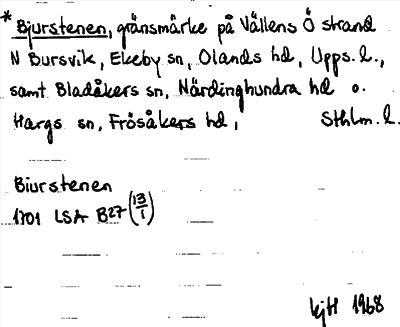 * Bjurstenen, gränsmärke på Vällens Ö strand
N Bursvik, Ekeby sn, Olands hd, Upps. l.,
samt Bladåkers sn, Närdinghundra hd o.
Hargs sn, Frösåkers hd, Sthlm. l.
Biurstenen
1701 LSA B27 (13/1)
kjH 1968